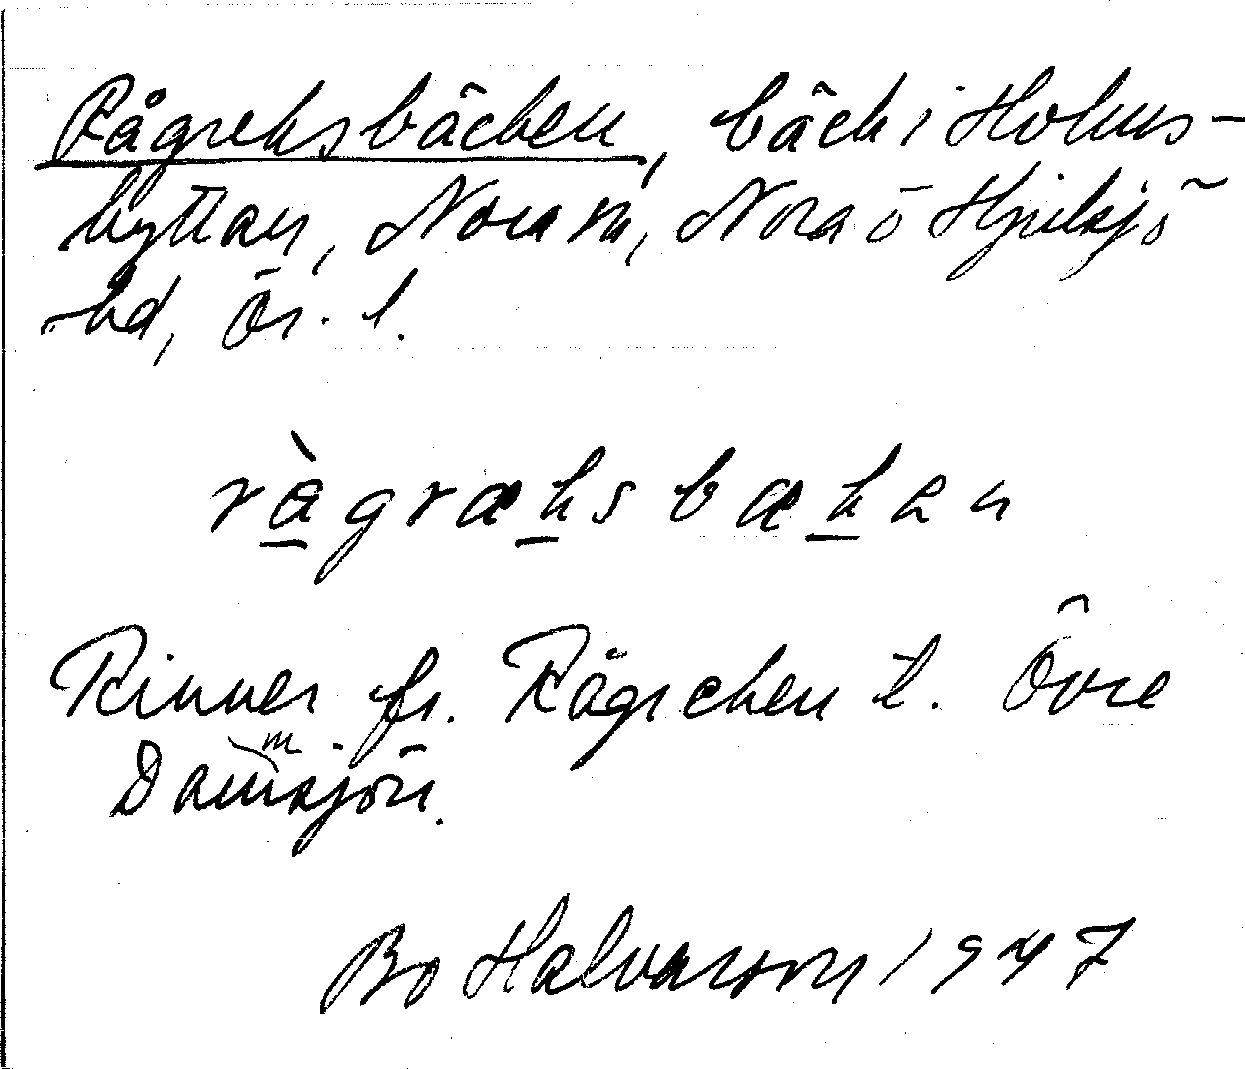 Rågreksbäcken, bäck i Holms-
hyttan, Nora sn, Nora o Hjulsjö
hd, Ör. l.
ràgræksbæken
Rinner fr. Rågrecken t. Övre
Dammsjön.
Bo Halvarson 1947